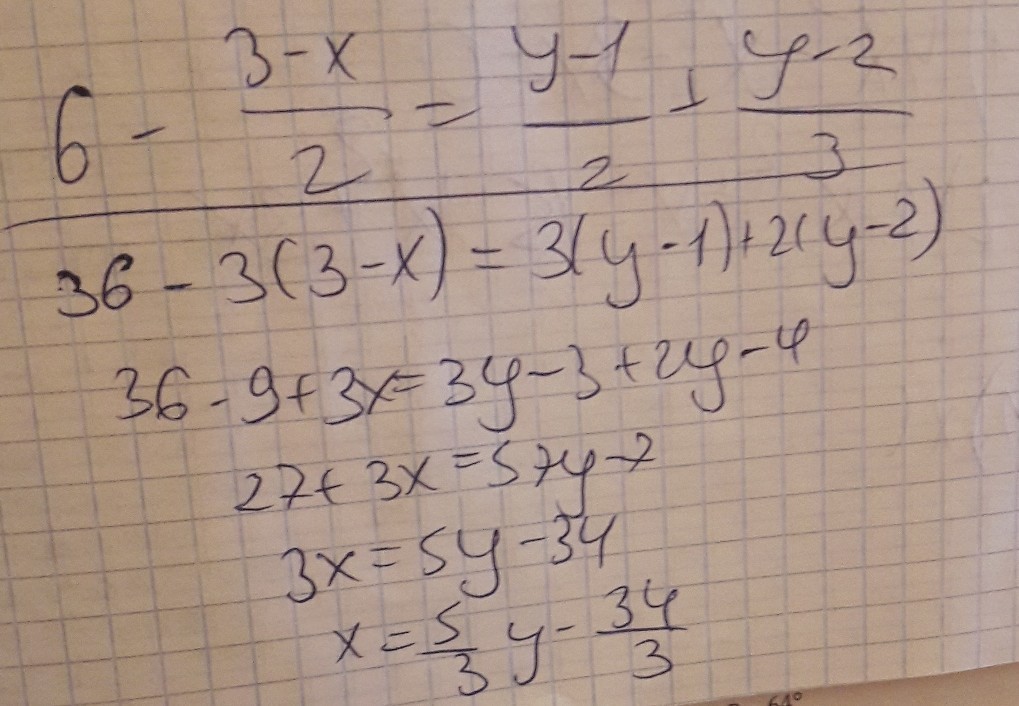 6 - \frac{3-x}{2} = \frac{y-1}{2} + \frac{y-2}{3}
36 - 3(3-x) = 3(y-1)+2(y-2)
36-9+3x=3y-3+2y-4
27+3x=5y-7
3x=5y-34
x=\frac{5}{3}y-\frac{34}{3}
64°